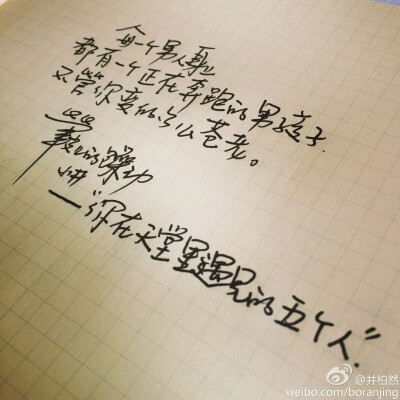 每一个男人身上
都有一个正在奔跑的男孩子.
不管你变的多么苍老。
的躁动
—“你在天堂里遇见的五个人”
@井柏然
weibo.com/boranjing